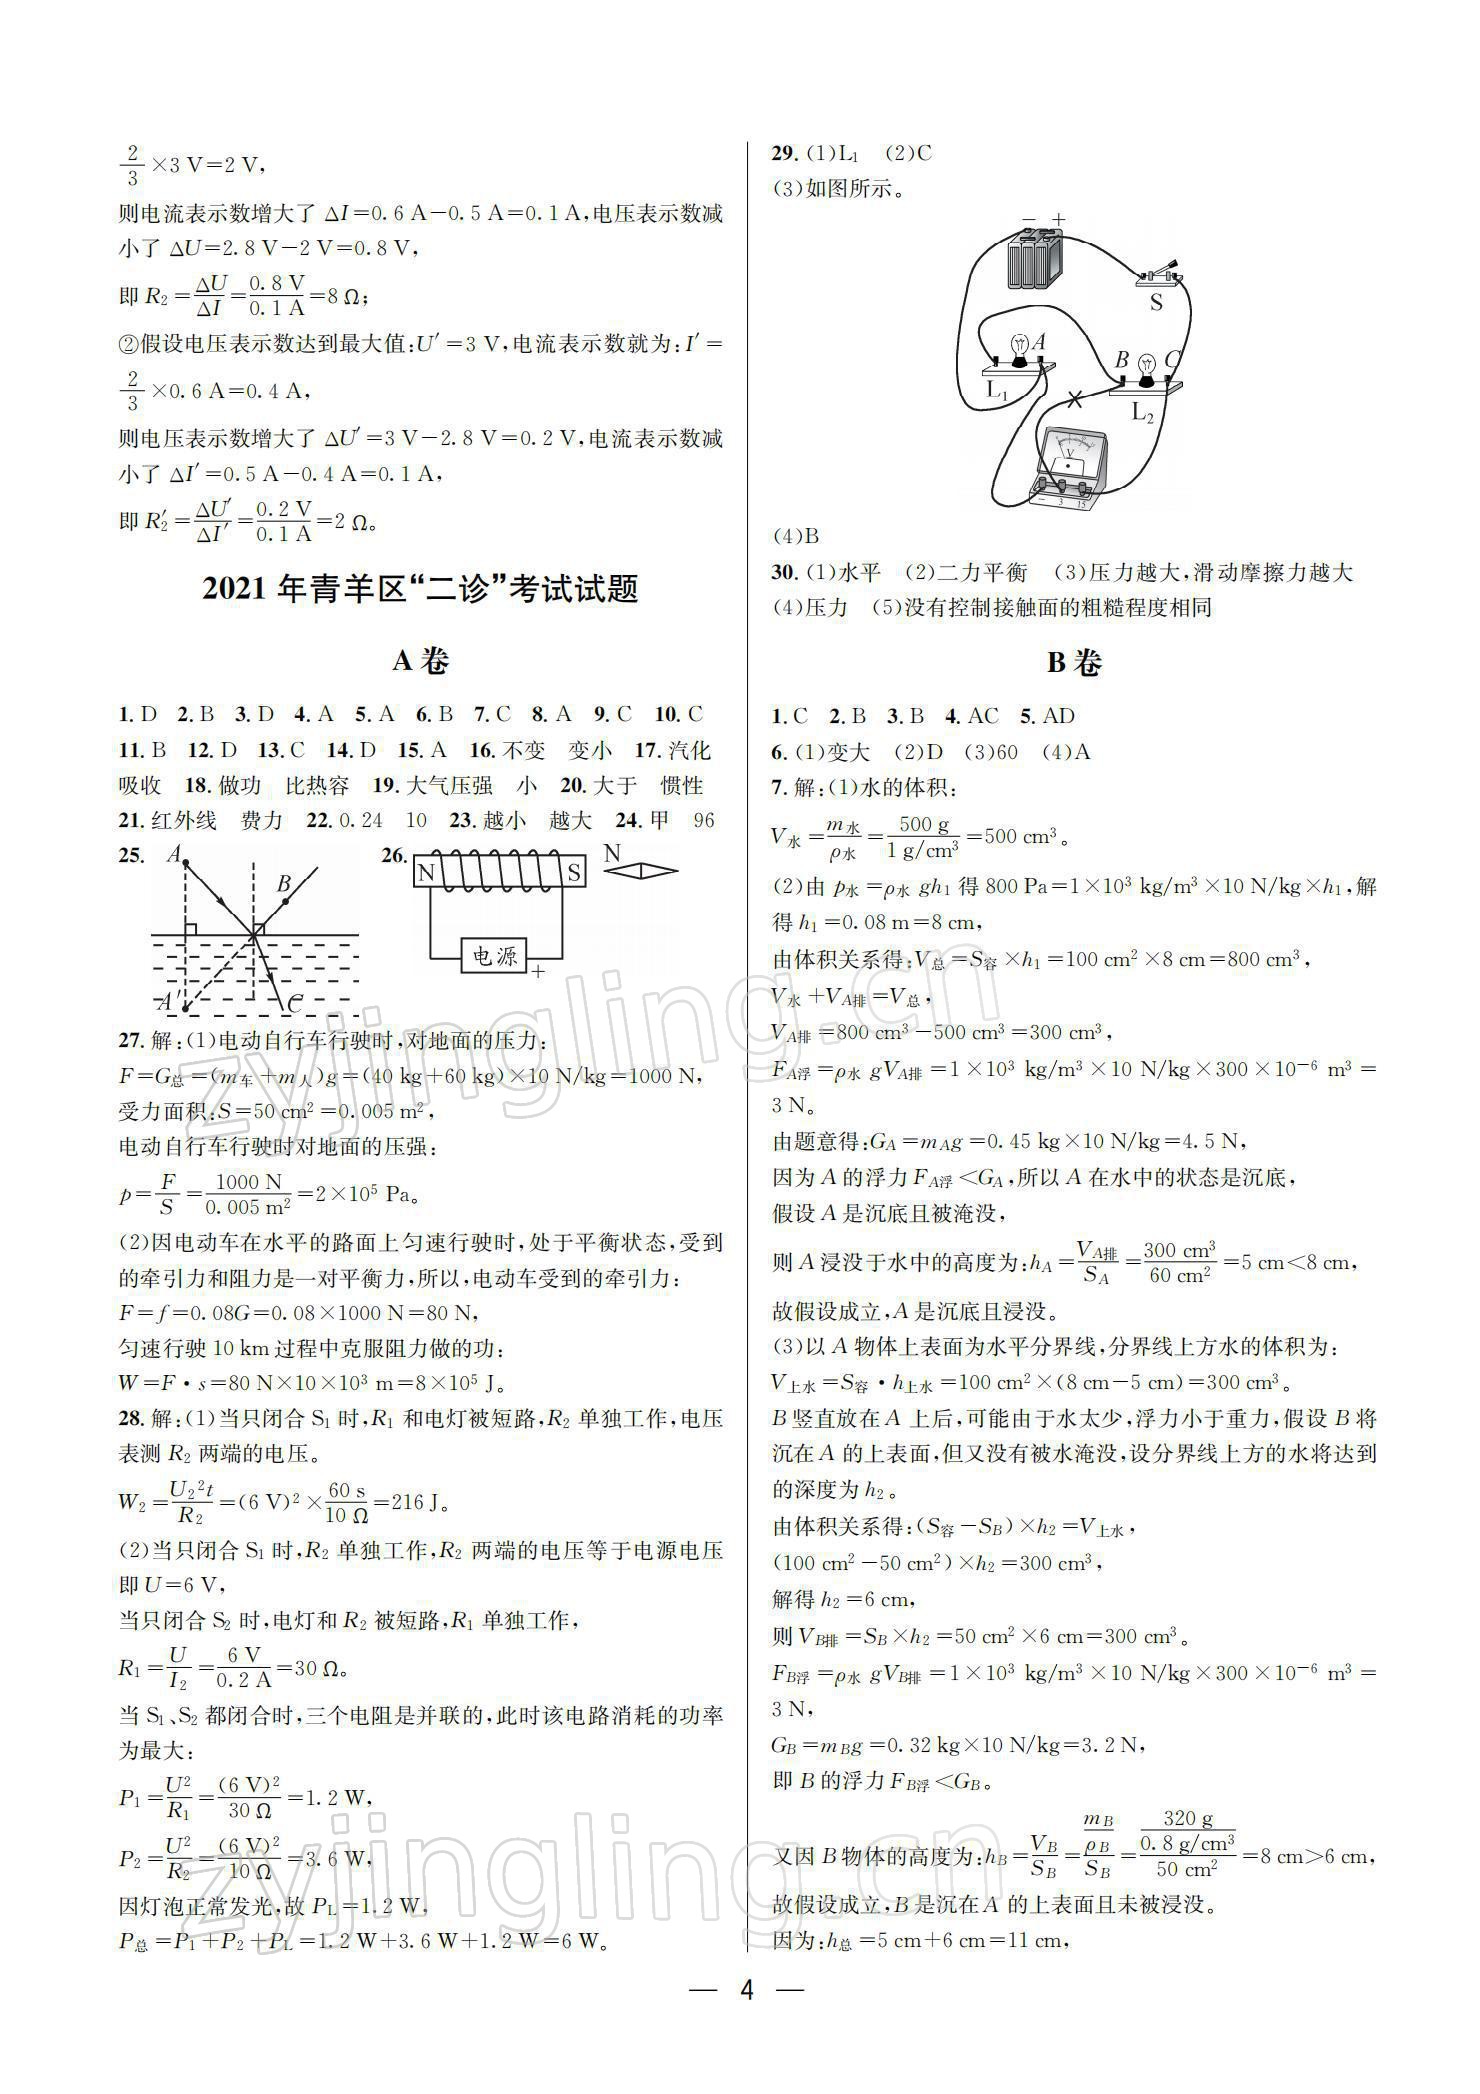 2/3×3 V=2 V,
则电流表示数增大了 ΔI=0.6 A−0.5 A=0.1 A,电压表示数减
小了 ΔU=2.8 V−2 V=0.8 V,
即 R₂=ΔU/ΔI=0.8 V/0.1 A=8 Ω;
②假设电压表示数达到最大值:U′=3 V,电流表示数就为:I′=
2/3×0.6 A=0.4 A,
则电压表示数增大了 ΔU′=3 V−2.8 V=0.2 V,电流表示数减
小了 ΔI′=0.5 A−0.4 A=0.1 A,
即 R₂′=ΔU′/ΔI′=0.2 V/0.1 A=2 Ω。
2021 年青羊区“二诊”考试试题
A 卷
1. D 2. B 3. D 4. A 5. A 6. B 7. C 8. A 9. C 10. C
11. B 12. D 13. C 14. D 15. A 16. 不变 变小 17. 汽化
吸收 18. 做功 比热容 19. 大气压强 小 20. 大于 惯性
21. 红外线 费力 22. 0.24 10 23. 越小 越大 24. 甲 96
25. A B A′ C
26. N S N 电源 +
27. 解:(1)电动自行车行驶时,对地面的压力:
F=G总=(m车+m人)g=(40 kg+60 kg)×10 N/kg=1000 N,
受力面积:S=50 cm²=0.005 m²,
电动自行车行驶时对地面的压强:
p=F/S=1000 N/0.005 m²=2×10⁵ Pa。
(2)因电动车在水平的路面上匀速行驶时,处于平衡状态,受到
的牵引力和阻力是一对平衡力,所以,电动车受到的牵引力:
F=f=0.08G=0.08×1000 N=80 N,
匀速行驶 10 km 过程中克服阻力做的功:
W=F·s=80 N×10×10³ m=8×10⁵ J。
28. 解:(1)当只闭合 S₁ 时,R₁ 和电灯被短路,R₂ 单独工作,电压
表测 R₂ 两端的电压。
W₂=U₂²t/R₂=(6 V)²×60 s/10 Ω=216 J。
(2)当只闭合 S₁ 时,R₂ 单独工作,R₂ 两端的电压等于电源电压
即 U=6 V,
当只闭合 S₂ 时,电灯和 R₂ 被短路,R₁ 单独工作,
R₁=U/I₂=6 V/0.2 A=30 Ω。
当 S₁、S₂ 都闭合时,三个电阻是并联的,此时该电路消耗的功率
为最大:
P₁=U²/R₁=(6 V)²/30 Ω=1.2 W,
P₂=U²/R₂=(6 V)²/10 Ω=3.6 W,
因灯泡正常发光,故 P_L=1.2 W,
P总=P₁+P₂+P_L=1.2 W+3.6 W+1.2 W=6 W。
29. (1)L₁ (2)C
(3)如图所示。
− +
S
A
B C
L₁
L₂
V
− 3 15
(4)B
30. (1)水平 (2)二力平衡 (3)压力越大,滑动摩擦力越大
(4)压力 (5)没有控制接触面的粗糙程度相同
B 卷
1. C 2. B 3. B 4. AC 5. AD
6. (1)变大 (2)D (3)60 (4)A
7. 解:(1)水的体积:
V水=m水/ρ水=500 g/1 g/cm³=500 cm³。
(2)由 p水=ρ水gh₁ 得 800 Pa=1×10³ kg/m³×10 N/kg×h₁,解
得 h₁=0.08 m=8 cm,
由体积关系得:V总=S容×h₁=100 cm²×8 cm=800 cm³,
V水+V_A排=V总,
V_A排=800 cm³−500 cm³=300 cm³,
F_A浮=ρ水gV_A排=1×10³ kg/m³×10 N/kg×300×10⁻⁶ m³=
3 N。
由题意得:G_A=m_Ag=0.45 kg×10 N/kg=4.5 N,
因为 A 的浮力 F_A浮<G_A,所以 A 在水中的状态是沉底,
假设 A 是沉底且被淹没,
则 A 浸没于水中的高度为:h_A=V_A排/S_A=300 cm³/60 cm²=5 cm<8 cm,
故假设成立,A 是沉底且浸没。
(3)以 A 物体上表面为水平分界线,分界线上方水的体积为:
V上水=S容·h上水=100 cm²×(8 cm−5 cm)=300 cm³。
B 竖直放在 A 上后,可能由于水太少,浮力小于重力,假设 B 将
沉在 A 的上表面,但又没有被水淹没,设分界线上方的水将达到
的深度为 h₂。
由体积关系得:(S容−S_B)×h₂=V上水,
(100 cm²−50 cm²)×h₂=300 cm³,
解得 h₂=6 cm,
则 V_B排=S_B×h₂=50 cm²×6 cm=300 cm³。
F_B浮=ρ水gV_B排=1×10³ kg/m³×10 N/kg×300×10⁻⁶ m³=
3 N,
G_B=m_Bg=0.32 kg×10 N/kg=3.2 N,
即 B 的浮力 F_B浮<G_B。
又因 B 物体的高度为:h_B=V_B/S_B=(m_B/ρ_B)/S_B=(320 g/0.8 g/cm³)/50 cm²=8 cm>6 cm,
故假设成立,B 是沉在 A 的上表面且未被浸没。
因为:h总=5 cm+6 cm=11 cm,
— 4 —
zyjingling.cn
zyjingling.cn